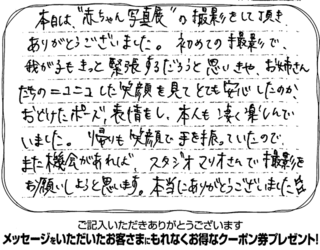 本日は、"赤ちゃん写真展"の撮影をして頂き
ありがとうございました。初めての撮影で、
我が子もきっと緊張するだろうと思いきや、お姉さん
たちのニコニコした笑顔を見てとても安心したのか
おどけたポーズ、表情をし、本人も凄く楽しんで
いました。帰りも笑顔で手を振っていたので、
また機会があれば、スタジオマリオさんで撮影を
お願いしようと思います。本当にありがとうございました
ご記入いただきありがとうございます
メッセージをいただいたお客さまにもれなくお得なクーポン券プレゼント!